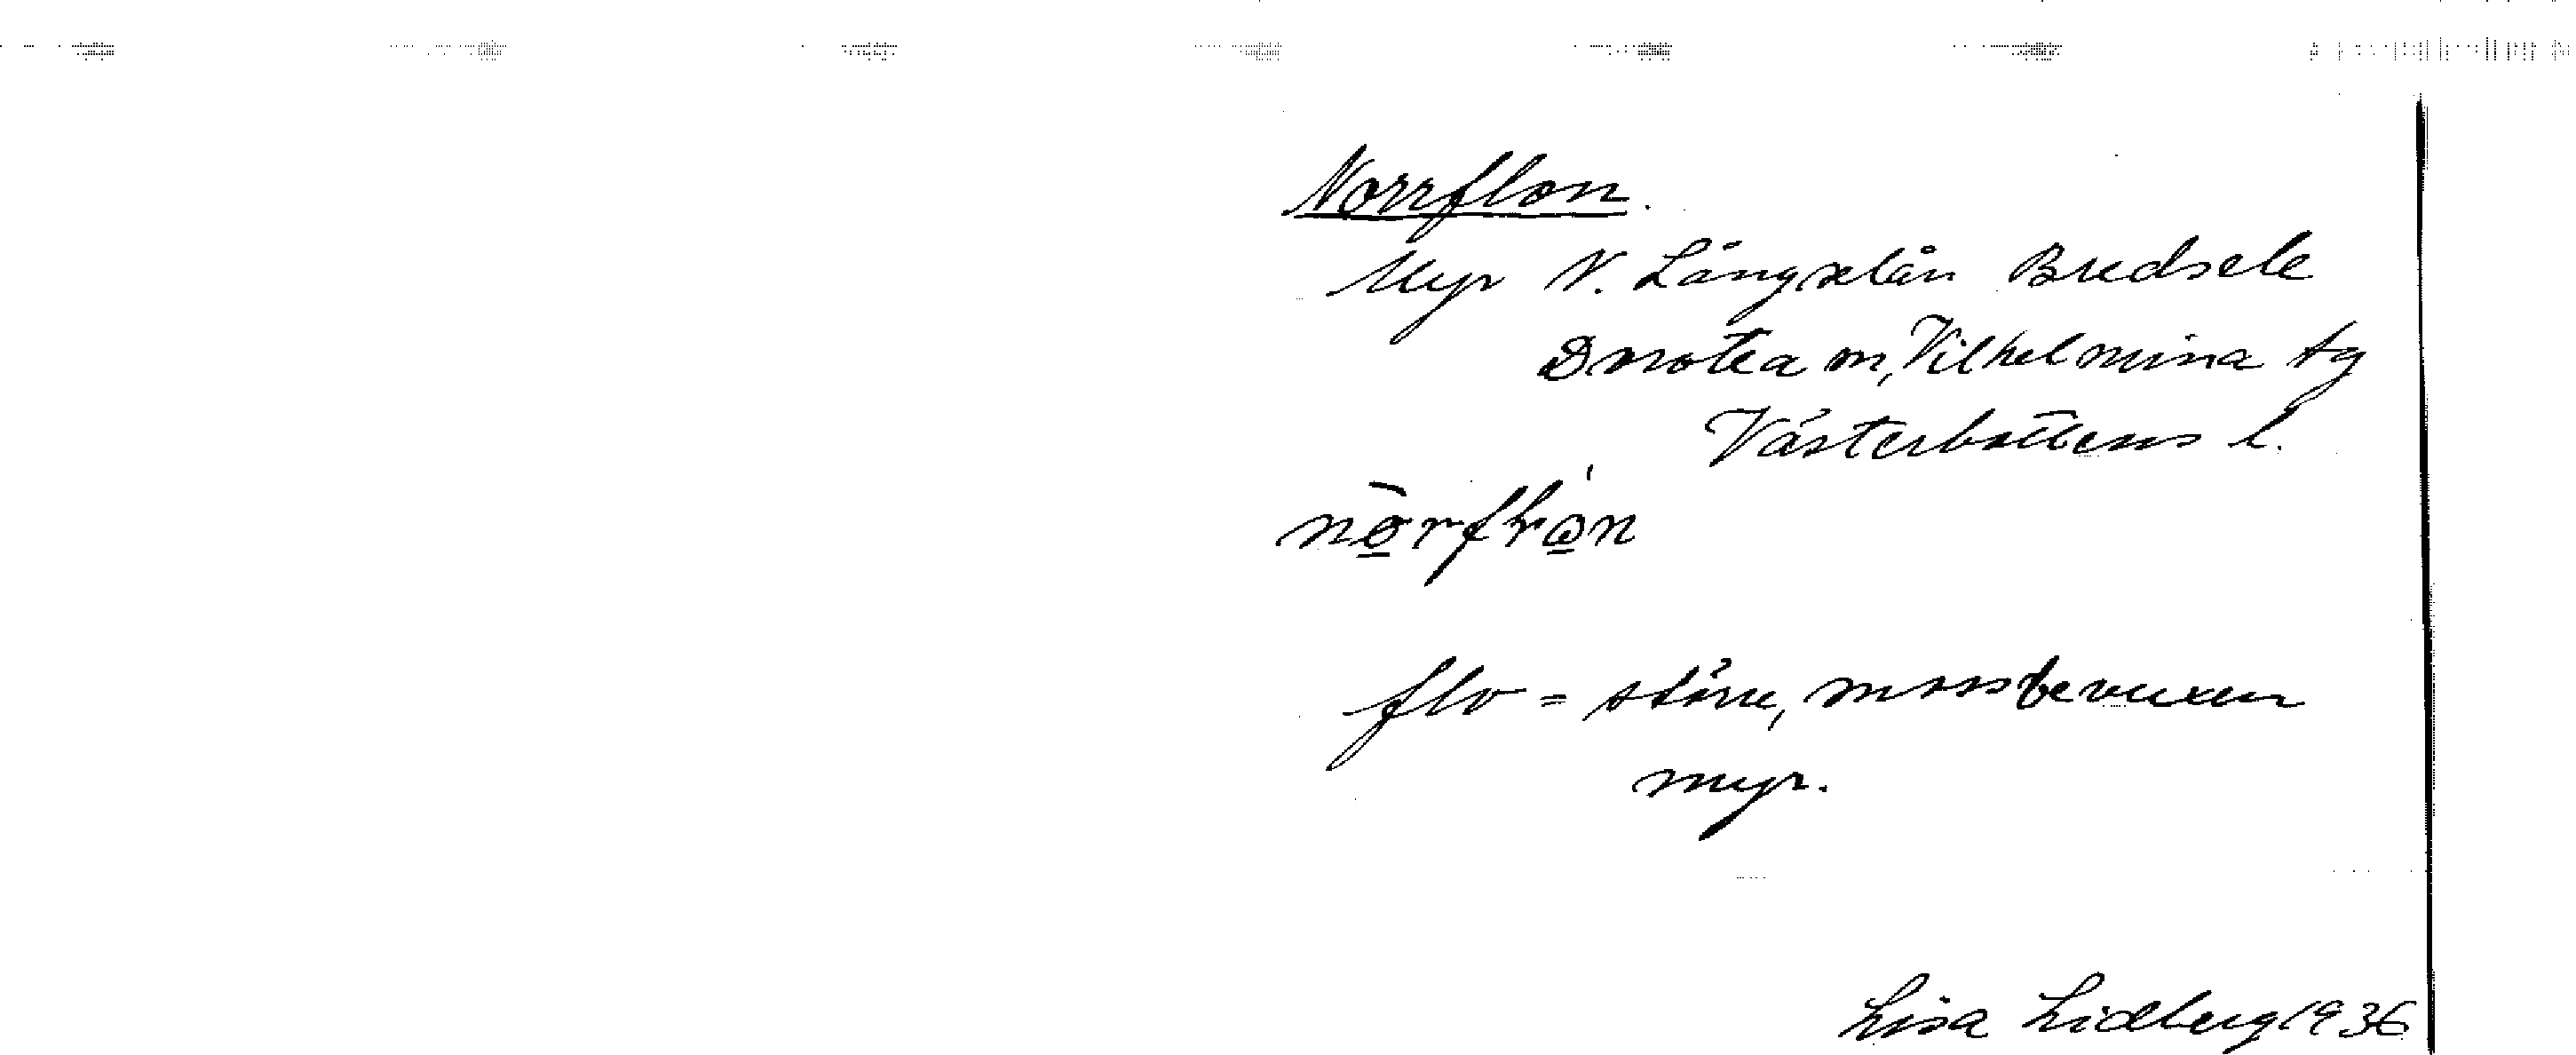 Norrflon.
Myr N. Långselån Bredsele
Dorotea sn, Vilhelmina tg
Västerbottens l.
flo = större, mossbevuxen
myr.
Lisa Lidberg 1936